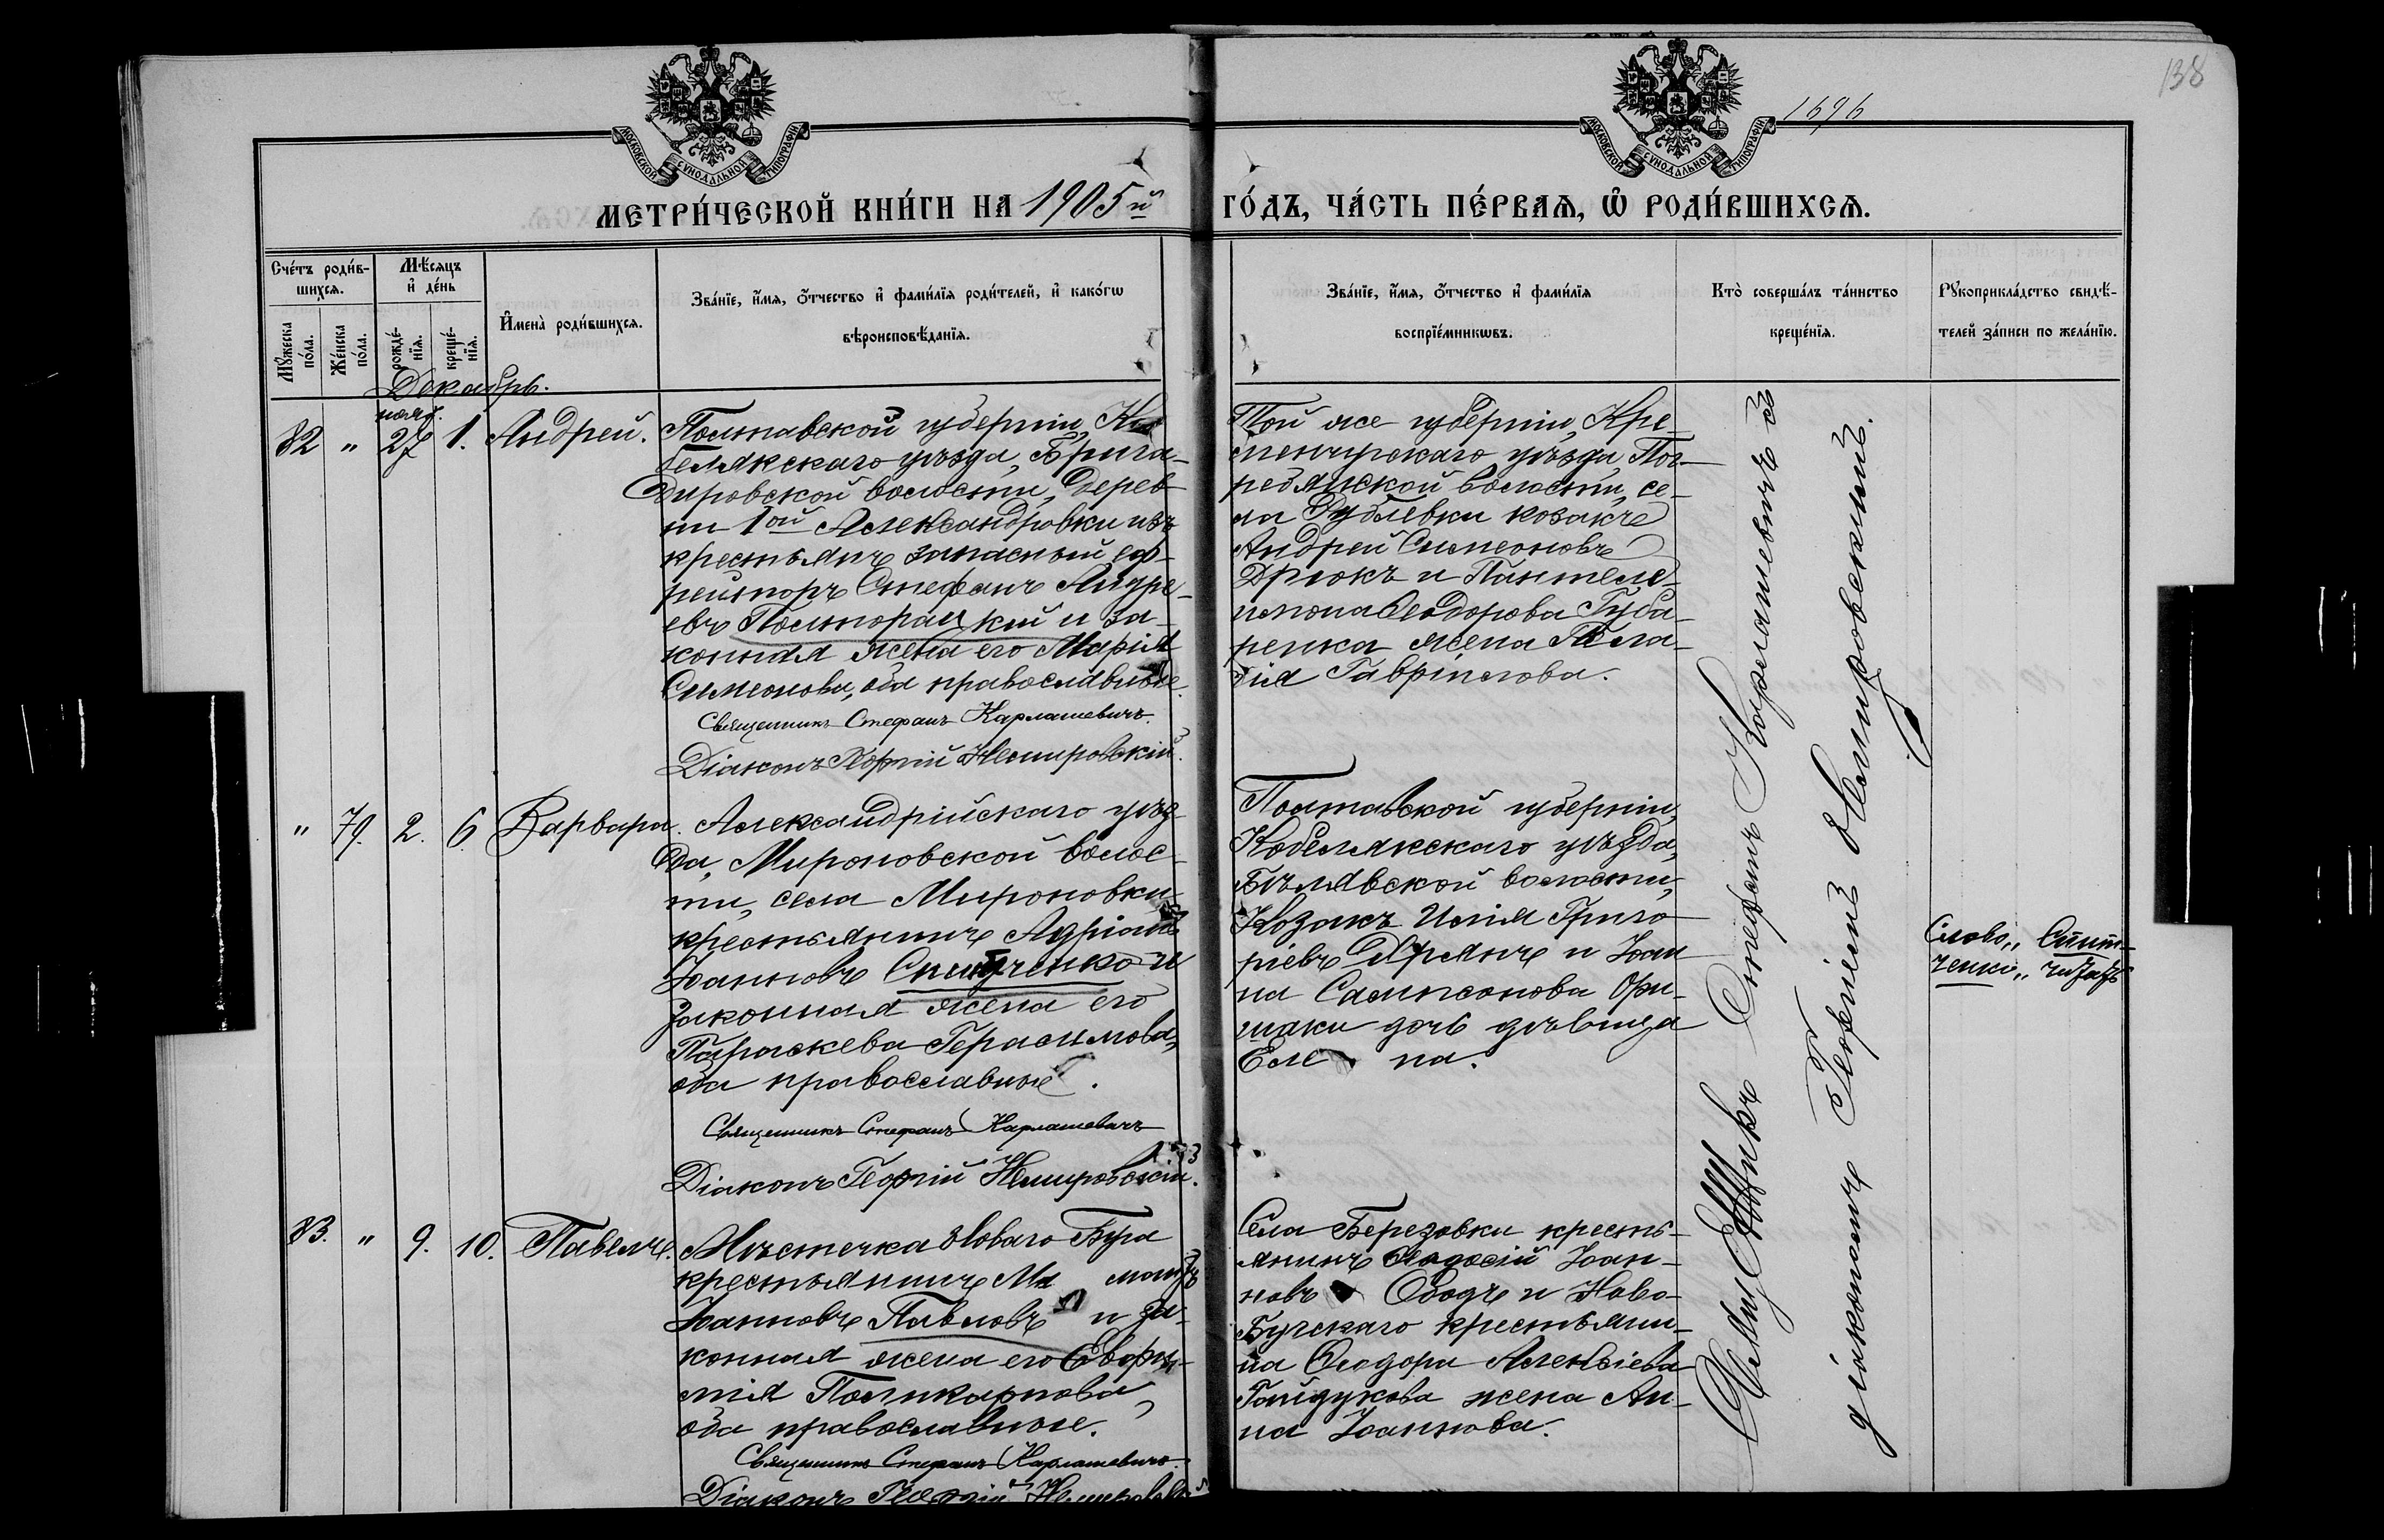 138
1696
МОСКОВСКОЙ СѴНОДАЛЬНОЙ ТИПОГРАФІИ
МОСКОВСКОЙ СѴНОДАЛЬНОЙ ТИПОГРАФІИ
МЕТРИ́ЧЕСКОЙ КНИ́ГИ НА 1905й ГО́ДЪ, ЧА́СТЬ ПЕ́РВАѦ, Ѽ РОДИ́ВШИХСѦ.
Сче́тъ роди́в-
шихсѧ.
Мѣ́сѧцъ
и҆ де́нь
Мꙋ́жеска по́ла.
Же́нска по́ла.
рожде́-
нїѧ.
креще́-
нїѧ.
И҆мена̀ роди́вшихсѧ.
Зва́нїе, и҆́мѧ, ѻ҆́тчество и҆ фами́лїѧ роди́телей, и҆ како́гѡ
вѣроисповѣ́данїѧ.
Зва́нїе, и҆́мѧ, ѻ҆́тчество и҆ фами́лїѧ
воспрїе́мникѡвъ.
Кто̀ соверша́лъ та́инство
креще́нїѧ.
Рꙋкоприкла́дство свидѣ́-
телей за́писи по жела́нїю.
Декабрь.
нояб.
82 " 27 1. Андрей.
Полтавской губерніи, Ко
белякскаго уѣзда, Брига-
дировской волости, дерев-
ни 1ой Александровки изъ
крестьянъ запасный еф-
рейторъ Стефанъ Андре-
евъ Полторацкій и за-
конная жена его Марія
Симеонова, оба православные.
Священникъ Стефанъ Карлашевичъ.
Діаконъ Георгій Немировскій.
Той же губерніи, Кре-
менчугскаго уѣзда, Пог-
ребянской волости, се-
ла Рублевки козакъ
Андрей Симеоновъ
Дрюкъ и Пантеле-
имона Ѳеодорова Губа-
ренка жена Пела-
гія Гавріилова.
" 79. 2. 6 Варвара.
Александрійскаго уѣз-
да, Мироновской волос-
ти, села Мироновки
крестьянинъ Адріанъ
Іоанновъ Снитченко и
законная жена его
Параскева Герасимова,
оба православные.
Священникъ Стефанъ Карлашевичъ
Діаконъ Георгій Немировскій.
Полтавской губерніи,
Кобелякскаго уѣзда,
Бѣлявской волости,
Козакъ Илія Григо
ріевъ и Іоан
на Сампсонова Ори-
шаки дочь дѣвица
Еле на.
83. " 9. 10. Павелъ.
Мѣстечка Новаго Буга
крестьянинъ
Іоанновъ Павловъ и за-
конная жена его Евфи-
мія Поликарпова,
оба православные.
Священникъ Стефанъ Карлашевичъ.
Діаконъ Георгій Немировскій
Села Березовки кресть-
янинъ Ѳеодосій Іоан-
новъ Ободъ и Ново-
Бугскаго крестьяни-
на Ѳеодора Алексіева
Гайдукова жена Ан-
на Іоаннова.
Священникъ Стефанъ Карлашевичъ съ
діакономъ Георгіемъ Немировскимъ.
Слово „Снит-
ченко„